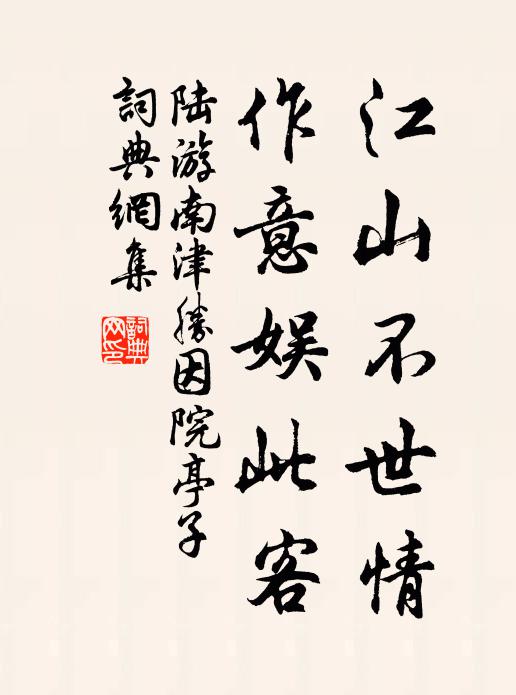 江山不世情
作意娱此客
陆游南津勝因院亭子
詞典網集
詞典
网印